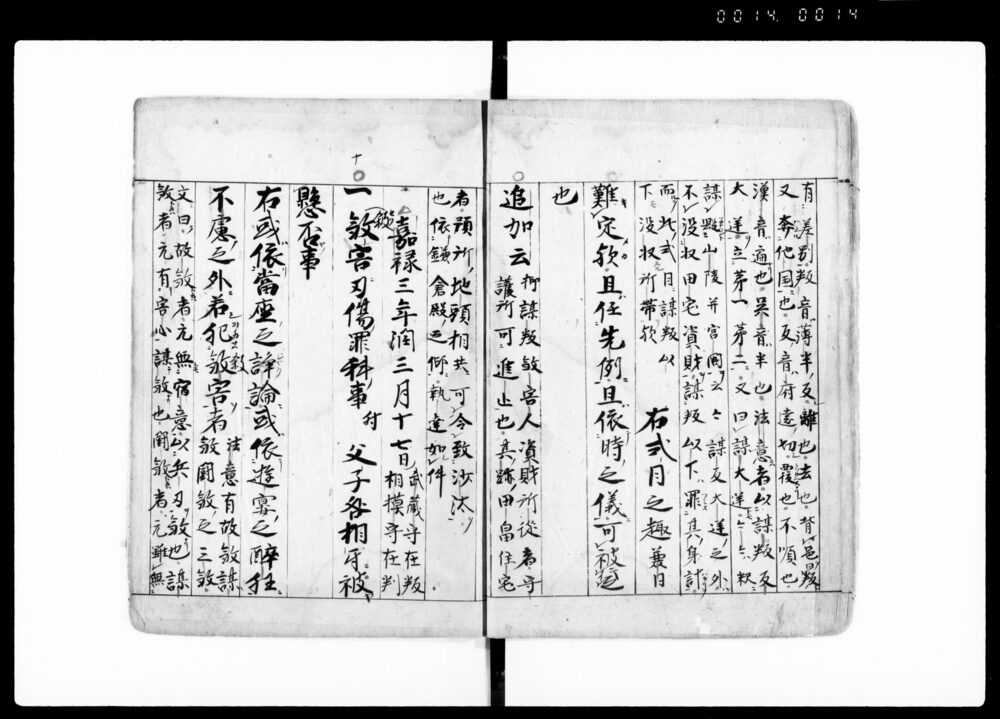 0014 0014
有差別叛音薄半反離也法也背邑叛
又奔他国也反音府遠切覆也不順也
漢音遍也吴音半也法意者以謀叛反
大逆立第一第二又曰謀大逆
謀毀山陵并宮闕云々謀反大逆之外
不没収田宅資財謀叛以下罪其身計
而此式目謀叛以
下没収所帯歟
右式目之趣兼日
難定歟且任先例且依時之儀可被
也
追加云
謀叛敘害人資財所従者守
護所可進止也其跡田畠住宅
者預所地頭相共可令致沙汰
也依鎌倉殿之仰執達如件
嘉禄三年潤三月十七日
武蔵守在叛
相摸守在判
十
一敘害刃傷罪科事付父子咎相牙被
懸否事
右或依當座之諍論或依遊宴之醉狂
不慮之外若犯敘害者
法意有故敘謀
敘闘敘之三敘
文曰故敘者元無宿意以兵刃敘也謀
敘者元有害心謀敘也闘敘者元雖無